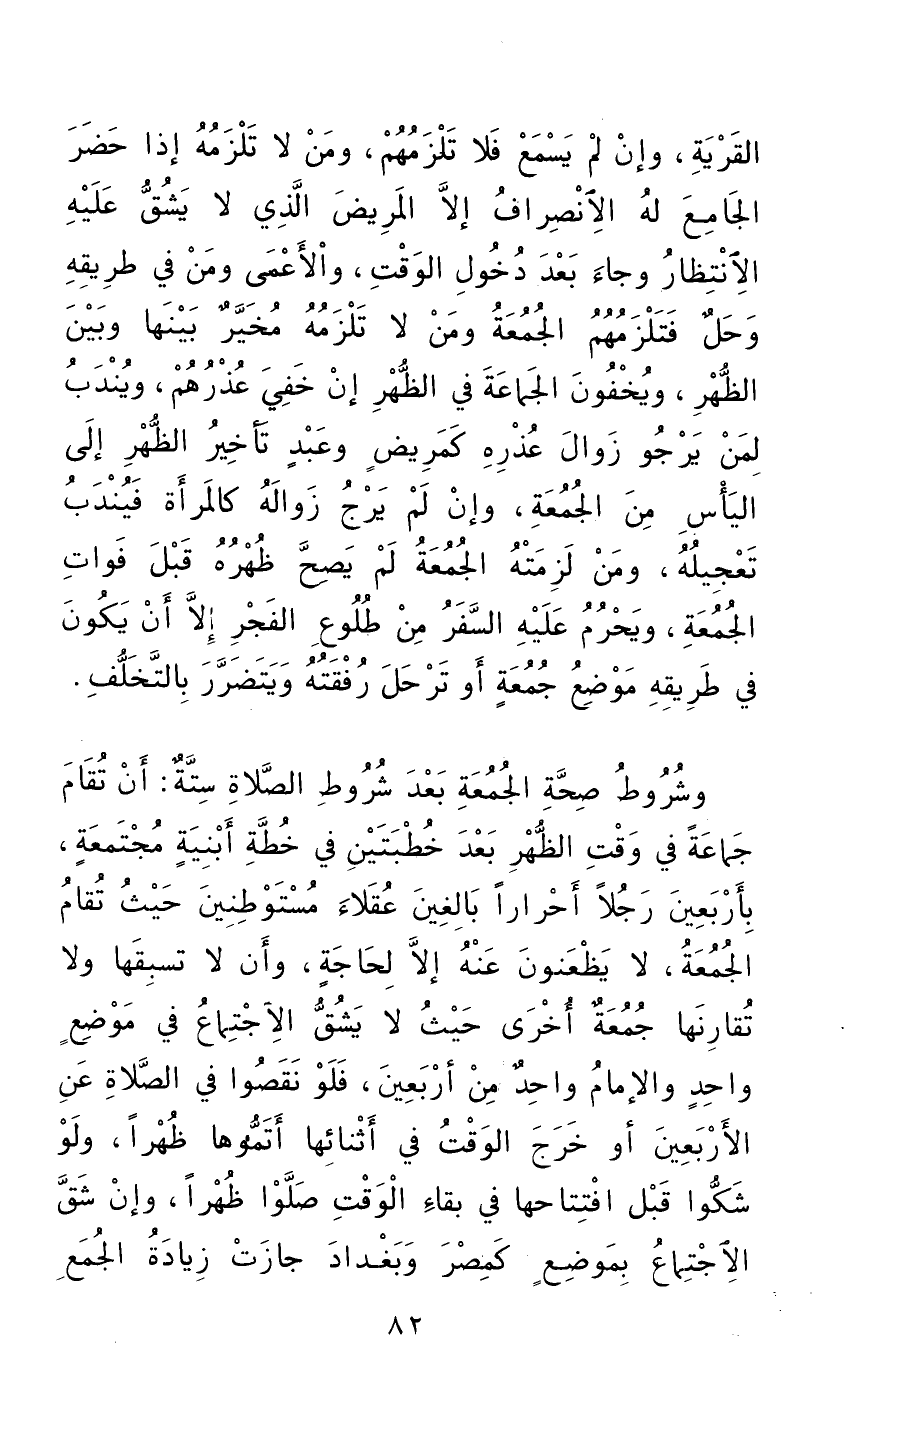 القَرْيَةِ، وإنْ لمْ يَسْمَعْ فَلا تَلْزَمُهُمْ، ومَنْ لا تَلْزَمُهُ إذا حَضَرَ
الجَامِعَ لهُ الاِنْصِرافُ إلاَّ المَرِيضَ الَّذِي لا يَشُقُّ عَلَيْهِ
الاِنْتِظارُ وجاءَ بَعْدَ دُخُولِ الوَقْتِ، والأَعْمَى ومَنْ في طريقِهِ
وَحَلٌ فَتَلْزَمُهُمُ الجُمُعَةُ ومَنْ لا تَلْزَمُهُ مُخَيَّرٌ بَيْنَها وبَيْنَ
الظُّهْرِ، ويُخْفُونَ الجَماعَةَ في الظُّهْرِ إنْ خَفِيَ عُذْرُهُمْ، ويُنْدَبُ
لِمَنْ يَرْجُو زَوالَ عُذْرِهِ كَمَرِيضٍ وعَبْدٍ تَأْخِيرُ الظُّهْرِ إلَى
اليَأْسِ مِنَ الجُمُعَةِ، وإنْ لَمْ يَرْجُ زَوالَهُ كالمَرأة فَيُنْدَبُ
تَعْجِيلُهُ، ومَنْ لَزِمَتْهُ الجُمُعَةُ لَمْ يَصِحَّ ظُهْرُهُ قَبْلَ فَواتِ
الجُمُعَةِ، ويَحْرُمُ عَلَيْهِ السَّفَرُ مِنْ طُلُوعِ الفَجْرِ إِلاَّ أَنْ يَكُونَ
في طَرِيقِهِ مَوْضِعُ جُمُعَةٍ أَو تَرْحَلَ رُفْقَتُهُ وَيَتَضَرَّرَ بِالتَّخَلُّفِ.
وشُرُوطُ صِحَّةِ الجُمُعَةِ بَعْدَ شُرُوطِ الصَّلاةِ سِتَّةٌ: أَنْ تُقَامَ
جَماعَةً في وَقْتِ الظُّهْرِ بَعْدَ خُطْبَتَيْنِ في خُطَّةِ أَبْنِيَةٍ مُجْتَمِعَةٍ،
بِأَرْبَعِينَ رَجُلاً أَحْراراً بَالِغِينَ عُقَلاءَ مُسْتَوْطِنِينَ حَيْثُ تُقامُ
الجُمُعَةُ، لا يَظْعَنونَ عَنْهُ إلاَّ لِحَاجَةٍ، وأَن لا تسبِقَها ولا
تُقارِنَها جُمُعَةٌ أُخْرَى حَيْثُ لا يَشُقُّ الاِجْتِماعُ في مَوْضِعٍ
واحِدٍ والإمامُ واحِدٌ مِنْ أرْبَعِينَ، فَلَوْ نَقَصُوا في الصَّلاةِ عَنِ
الأَرْبَعِينَ أو خَرَجَ الوَقْتُ في أَثْنائها أَتَمُّوها ظُهْراً، ولَوْ
شَكُّوا قَبْل افْتِتاحها في بقاءِ الْوَقْتِ صَلَّوْا ظُهْراً، وإنْ شَقَّ
الاِجْتِماعُ بِمَوضِعٍ كَمِصْرَ وَبَغْدادَ جازَتْ زِيادَةُ الجُمَعِ
٨٢